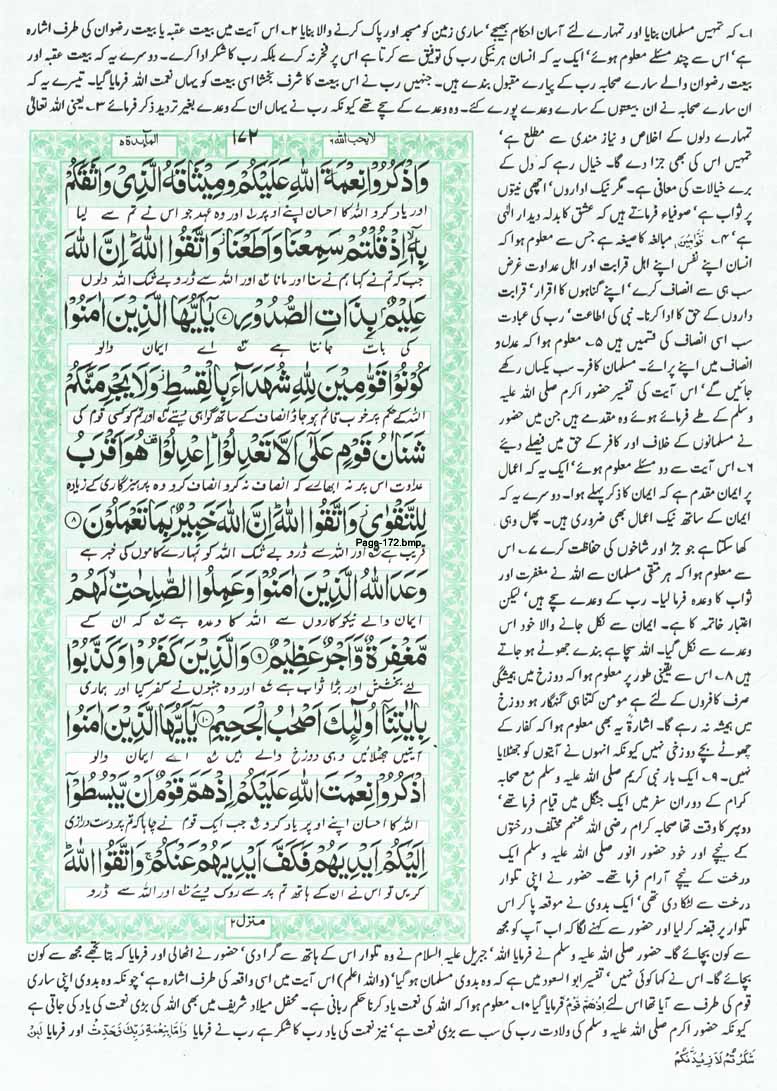 ۱۔ کہ تمہیں مسلمان بنایا اور تمہارے لئے آسان احکام بھیجے‘ ساری زمین کو مسجد اور پاک کرنے والا بنایا ۲۔ اس آیت میں بیعت عقبہ یا بیعت رضوان کی طرف اشارہ
ہے‘ اس سے چند مسئلے معلوم ہوئے‘ ایک یہ کہ انسان ہر نیکی رب کی توفیق سے کرتا ہے اس پر فخر نہ کرے بلکہ رب کا شکر ادا کرے۔ دوسرے یہ کہ بیعت عقبہ اور
بیعت رضوان والے سارے صحابہ رب کے پیارے مقبول بندے ہیں۔ جنہیں رب نے اس بیعت کا شرف بخشا اسی بیعت کو یہاں نعمت اللہ فرمایا گیا۔ تیسرے یہ کہ
ان سارے صحابہ نے ان بیعتوں کے سارے وعدے پورے کئے۔ وہ وعدے کے سچے تھے کیونکہ رب نے یہاں ان کے وعدے بغیر تردید ذکر فرمائے ۳۔ یعنی اللہ تعالیٰ
تمہارے دلوں کے اخلاص و نیاز مندی سے مطلع ہے‘
تمہیں اس کی بھی جزا دے گا۔ خیال رہے کہ دل کے
برے خیالات کی معافی ہے۔ مگر نیک ارادوں‘ اچھی نیتوں
پر ثواب ہے‘ صوفیاء فرماتے ہیں کہ عشق کا بدلہ دیدار الٰہی
ہے‘ ۴۔ قَوّٰمِیْنَ‘ مبالغہ کا صیغہ ہے جس سے معلوم ہوا کہ
انسان اپنے نفس اپنے اہل قرابت اور اہل عداوت غرض
سب ہی سے انصاف کرے‘ اپنے گناہوں کا اقرار‘ قرابت
داروں کے حق کا ادا کرنا۔ نبی کی اطاعت‘ رب کی عبادت
سب اسی انصاف کی قسمیں ہیں ۵۔ معلوم ہوا کہ عدل و
انصاف میں اپنے پرائے۔ مسلمان کافر۔ سب یکساں رکھے
جائیں گے‘ اس آیت کی تفسیر حضور اکرم صلی اللہ علیہ
وسلم کے طے فرمائے ہوئے وہ مقدمے ہیں جن میں حضور
نے مسلمانوں کے خلاف اور کافر کے حق میں فیصلے دیئے
۶۔ اس آیت سے دو مسئلے معلوم ہوئے‘ ایک یہ کہ اعمال
پر ایمان مقدم ہے کہ ایمان کا ذکر پہلے ہوا۔ دوسرے یہ کہ
ایمان کے ساتھ نیک اعمال بھی ضروری ہیں۔ پھل وہی
کھا سکتا ہے جو جڑ اور شاخوں کی حفاظت کرے ۷۔ اس
سے معلوم ہوا کہ ہر متقی مسلمان سے اللہ نے مغفرت اور
ثواب کا وعدہ فرما لیا۔ رب کے وعدے سچے ہیں‘ لیکن
اعتبار خاتمہ کا ہے۔ ایمان سے نکل جانے والا خود اس
وعدے سے نکل گیا۔ اللہ سچا ہے بندے جھوٹے ہو جاتے
ہیں ۸۔ اس سے یقینی طور پر معلوم ہوا کہ دوزخ میں ہمیشگی
صرف کافروں کے لئے ہے مومن کتنا ہی گنہگار ہو دوزخ
میں ہمیشہ نہ رہے گا۔ اشارۃً یہ بھی معلوم ہوا کہ کفار کے
چھوٹے بچے دوزخی نہیں کیونکہ انہوں نے آیتوں کو جھٹلایا
نہیں۔ ۹۔ ایک بار نبی کریم صلی اللہ علیہ وسلم مع صحابہ
کرام کے دوران سفر میں ایک جنگل میں قیام فرما تھے‘
دوپہر کا وقت تھا صحابہ کرام رضی اللہ عنہم مختلف درختوں
کے نیچے اور خود حضور انور صلی اللہ علیہ وسلم ایک
درخت کے نیچے آرام فرما تھے۔ حضور نے اپنی تلوار
درخت سے لٹکا دی تھی‘ ایک بدوی نے موقعہ پا کر اس
تلوار پر قبضہ کر لیا اور حضور سے کہنے لگا کہ اب آپ کو مجھ
سے کون بچائے گا۔ حضور صلی اللہ علیہ وسلم نے فرمایا اللہ‘ جبریل علیہ السلام نے وہ تلوار اس کے ہاتھ سے گرا دی‘ حضور نے اٹھالی اور فرمایا کہ بتا تجھے مجھ سے کون
بچائے گا۔ اس نے کہا کوئی نہیں‘ تفسیر ابو السعود میں ہے کہ وہ بدوی مسلمان ہو گیا‘ (واللہ اعلم) اس آیت میں اسی واقعہ کی طرف اشارہ ہے‘ چونکہ وہ بدوی اپنی ساری
قوم کی طرف سے آیا تھا اس لئے اِذْهَمَّ قَوْمٌ فرمایا گیا ۱۰۔ معلوم ہوا کہ اللہ کی نعمت یاد کرنا حکم ربانی ہے۔ محفل میلاد شریف میں بھی اللہ کی بڑی نعمت کی یاد کی جاتی ہے
کیونکہ حضور اکرم صلی اللہ علیہ وسلم کی ولادت رب کی سب سے بڑی نعمت ہے‘ نیز نعمت کی یاد رب کا شکر ہے رب نے فرمایا وَاَمَّا بِنِعْمَةِ رَبِّكَ فَحَدِّثْ اور فرمایا لَئِنْ
شَكَرْتُمْ لَاَزِيْدَنَّكُمْ
لا یحب اللہ ۶ ۱۷۲ المآئدۃ ۵
وَاذْكُرُوْا نِعْمَةَ اللّٰهِ عَلَيْكُمْ وَمِيْثَاقَهُ الَّذِيْ وَاثَقَكُمْ
اور یاد کرو اللہ کا احسان اپنے اوپر ۱ اور وہ عہد جو اس نے تم سے لیا
بِهٖۤ ۙ اِذْ قُلْتُمْ سَمِعْنَا وَاَطَعْنَا ۫ وَاتَّقُوا اللّٰهَ ؕ اِنَّ اللّٰهَ
جب کہ تم نے کہا ہم نے سنا اور مانا ۲ اور اللہ سے ڈرو بے شک اللہ دلوں
عَلِيْمٌۢ بِذَاتِ الصُّدُوْرِ ۷ يٰۤاَيُّهَا الَّذِيْنَ اٰمَنُوْا
کی بات جانتا ہے ۳ اے ایمان والو
كُوْنُوْا قَوّٰمِيْنَ لِلّٰهِ شُهَدَآءَ بِالْقِسْطِ ۫ وَلَا يَجْرِمَنَّكُمْ
اللہ کے حکم پر خوب قائم ہو جاؤ انصاف کے ساتھ گواہی دیتے ۴ اور تم کو کسی قوم کی
شَنَاٰنُ قَوْمٍ عَلٰۤى اَلَّا تَعْدِلُوْا ؕ اِعْدِلُوْا ۫ هُوَ اَقْرَبُ
عداوت اس پر نہ ابھارے کہ انصاف نہ کرو انصاف کرو وہ پرہیزگاری کے زیادہ
لِلتَّقْوٰى ۫ وَاتَّقُوا اللّٰهَ ؕ اِنَّ اللّٰهَ خَبِيْرٌۢ بِمَا تَعْمَلُوْنَ ۸
Page-172.bmp
قریب ہے ۵ اور اللہ سے ڈرو بے شک اللہ کو تمہارے کاموں کی خبر ہے
وَعَدَ اللّٰهُ الَّذِيْنَ اٰمَنُوْا وَعَمِلُوا الصّٰلِحٰتِ ۙ لَهُمْ
ایمان والے نیکوکاروں سے اللہ کا وعدہ ہے ۶ کہ ان کے
مَّغْفِرَةٌ وَّاَجْرٌ عَظِيْمٌ ۹ وَالَّذِيْنَ كَفَرُوْا وَكَذَّبُوْا
لئے بخشش اور بڑا ثواب ہے ۷ اور وہ جنہوں نے کفر کیا اور ہماری
بِاٰيٰتِنَاۤ اُولٰٓئِكَ اَصْحٰبُ الْجَحِيْمِ ۱۰ يٰۤاَيُّهَا الَّذِيْنَ اٰمَنُوا
آیتیں جھٹلائیں وہی دوزخ والے ہیں ۸ اے ایمان والو
اذْكُرُوْا نِعْمَتَ اللّٰهِ عَلَيْكُمْ اِذْ هَمَّ قَوْمٌ اَنْ يَّبْسُطُوْۤا
اللہ کا احسان اپنے اوپر یاد کرو جب ایک قوم نے چاہا کہ تم پر دست درازی
اِلَيْكُمْ اَيْدِيَهُمْ فَكَفَّ اَيْدِيَهُمْ عَنْكُمْ ۚ وَاتَّقُوا اللّٰهَ ؕ
کریں تو اس نے ان کے ہاتھ تم پر سے روک دیئے ۱۰ اور اللہ سے ڈرو
منزل ۲